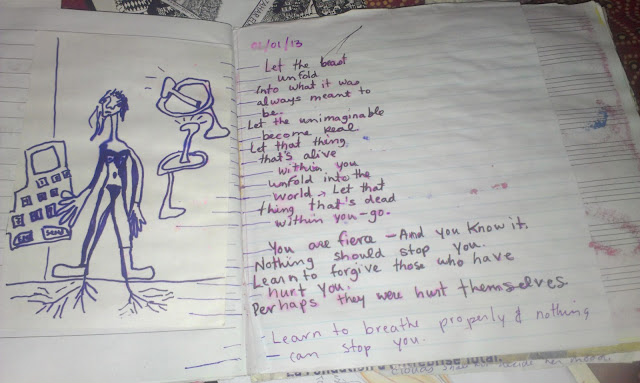 02/01/13
Let the beast
unfold
Into what it was
always meant to
be.
Let the unimaginable
become real
Let that thing
that's alive
within you
unfold into the
world → Let that
thing that's dead
within you - go.
You are fierce - And you know it.
Nothing should stop you.
Learn to forgive those who have
hurt you.
Perhaps they were hurt themselves.
- Learn to breathe properly & nothing
- can stop you.